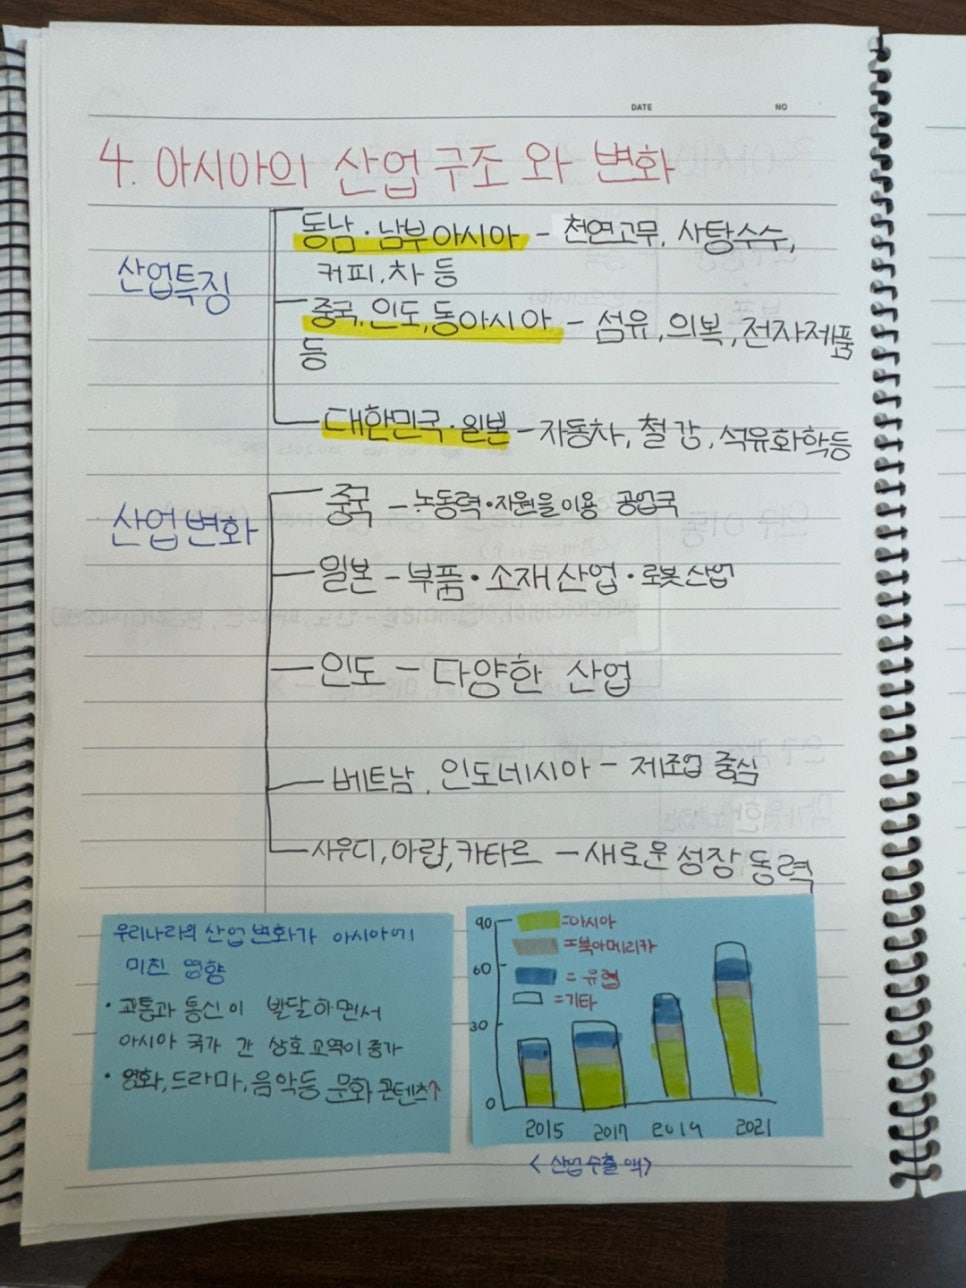 DATE NO
4. 아시아의 산업 구조 와 변화
산업특징
동남·남부아시아 - 천연고무, 사탕수수,
커피, 차 등
중국, 인도, 동아시아 - 섬유, 의복, 전자제품
등
대한민국·일본 - 자동차, 철강, 석유화학등
산업변화
중국 - 노동력·자원을이용 공업국
일본 - 부품·소재산업·로봇산업
인도 - 다양한 산업
베트남, 인도네시아 - 제조업 중심
사우디, 아랍, 카타르 - 새로운 성장 동력
우리나라의 산업 변화가 아시아에
미친 영향
• 교통과 통신이 발달하면서
아시아 국가 간 상호 교역이 증가
• 영화, 드라마, 음악등 문화콘텐츠↑
90
60
30
0
=아시아
=북아메리카
=유럽
=기타
2015 2017 2019 2021
<산업 수출 액>